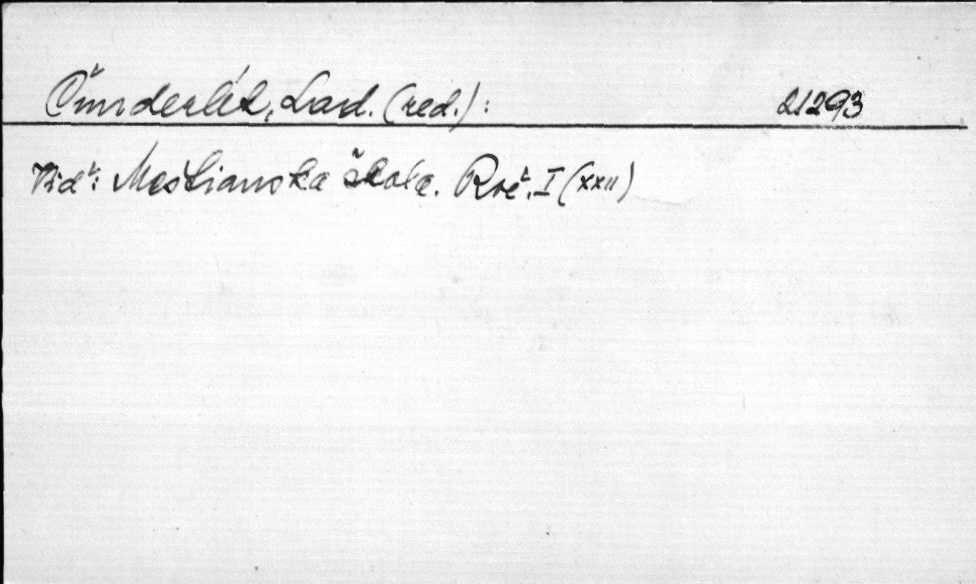 Čunderlík, Lad. (red.): 21293
Viď: Meštianska škola. Roč. I (XXII)